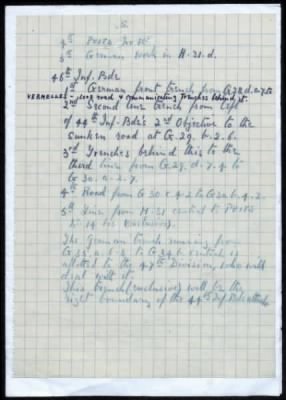 5.
4th Puits No 14
5th German work in H.31.d.
46th Inf. Bde
1st German front trench from G.28.d.4.7 to
VERMELLES - LOOS road & communicating trenches behind it.
2nd Second line trench from left
of 44th Inf. Bde's 2nd Objective to the
sunken road at G.29.b.2.6.
3rd Trenches behind this to the
third line from G.29.d.7.4 to
G.30.a.2.7.
4th Road from G.30.c.4.2 to G.30.b.4.2.
5th Line from H.31 central to Puits
No 14 bis (exclusive).
The German trench running from
G.35.a.6.2 to G.34.b. central is
allotted to the 47th Division, who will
deal with it.
This trench (exclusive) will be the
right boundary of the 44th Inf. Bde's attack